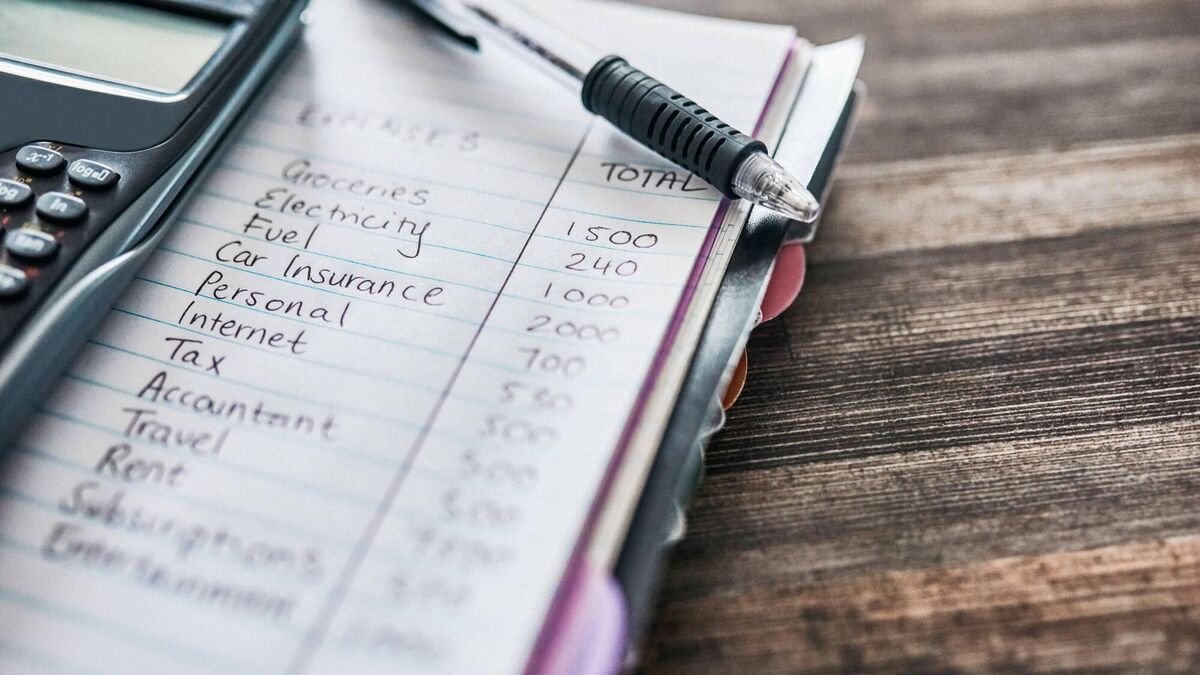 EXPENSES TOTAL
Groceries 1500
Electricity 240
Fuel 1000
Car Insurance 2000
Personal 700
Internet
Tax 500
Accountant 500
Travel 500
Rent
Subscriptions
Entertainment
x⁻¹ log□
ln